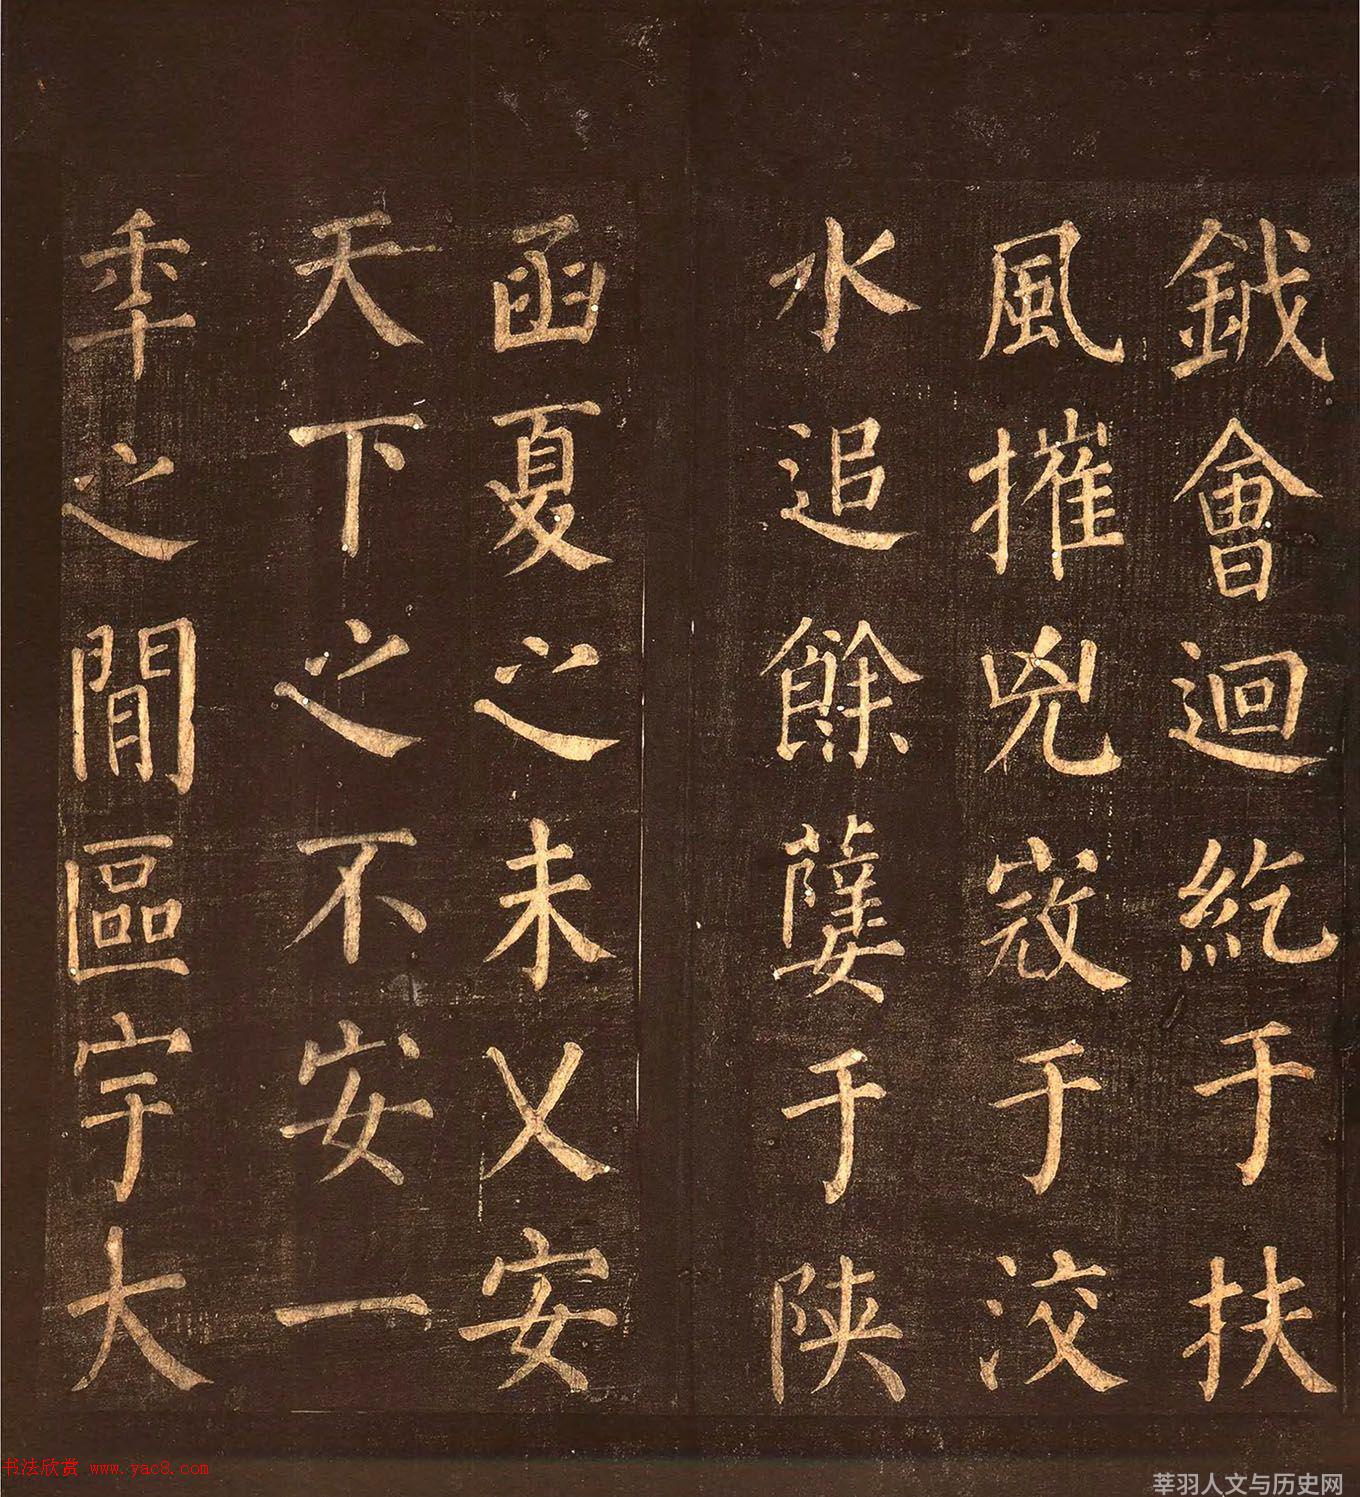 鉞會迴紇于扶
風摧兇寇于洨
水追餘孽于陝
函夏之未乂安
天下之不安一
年之間區宇大
书法欣赏 www.yac8.com
莘羽人文与历史网